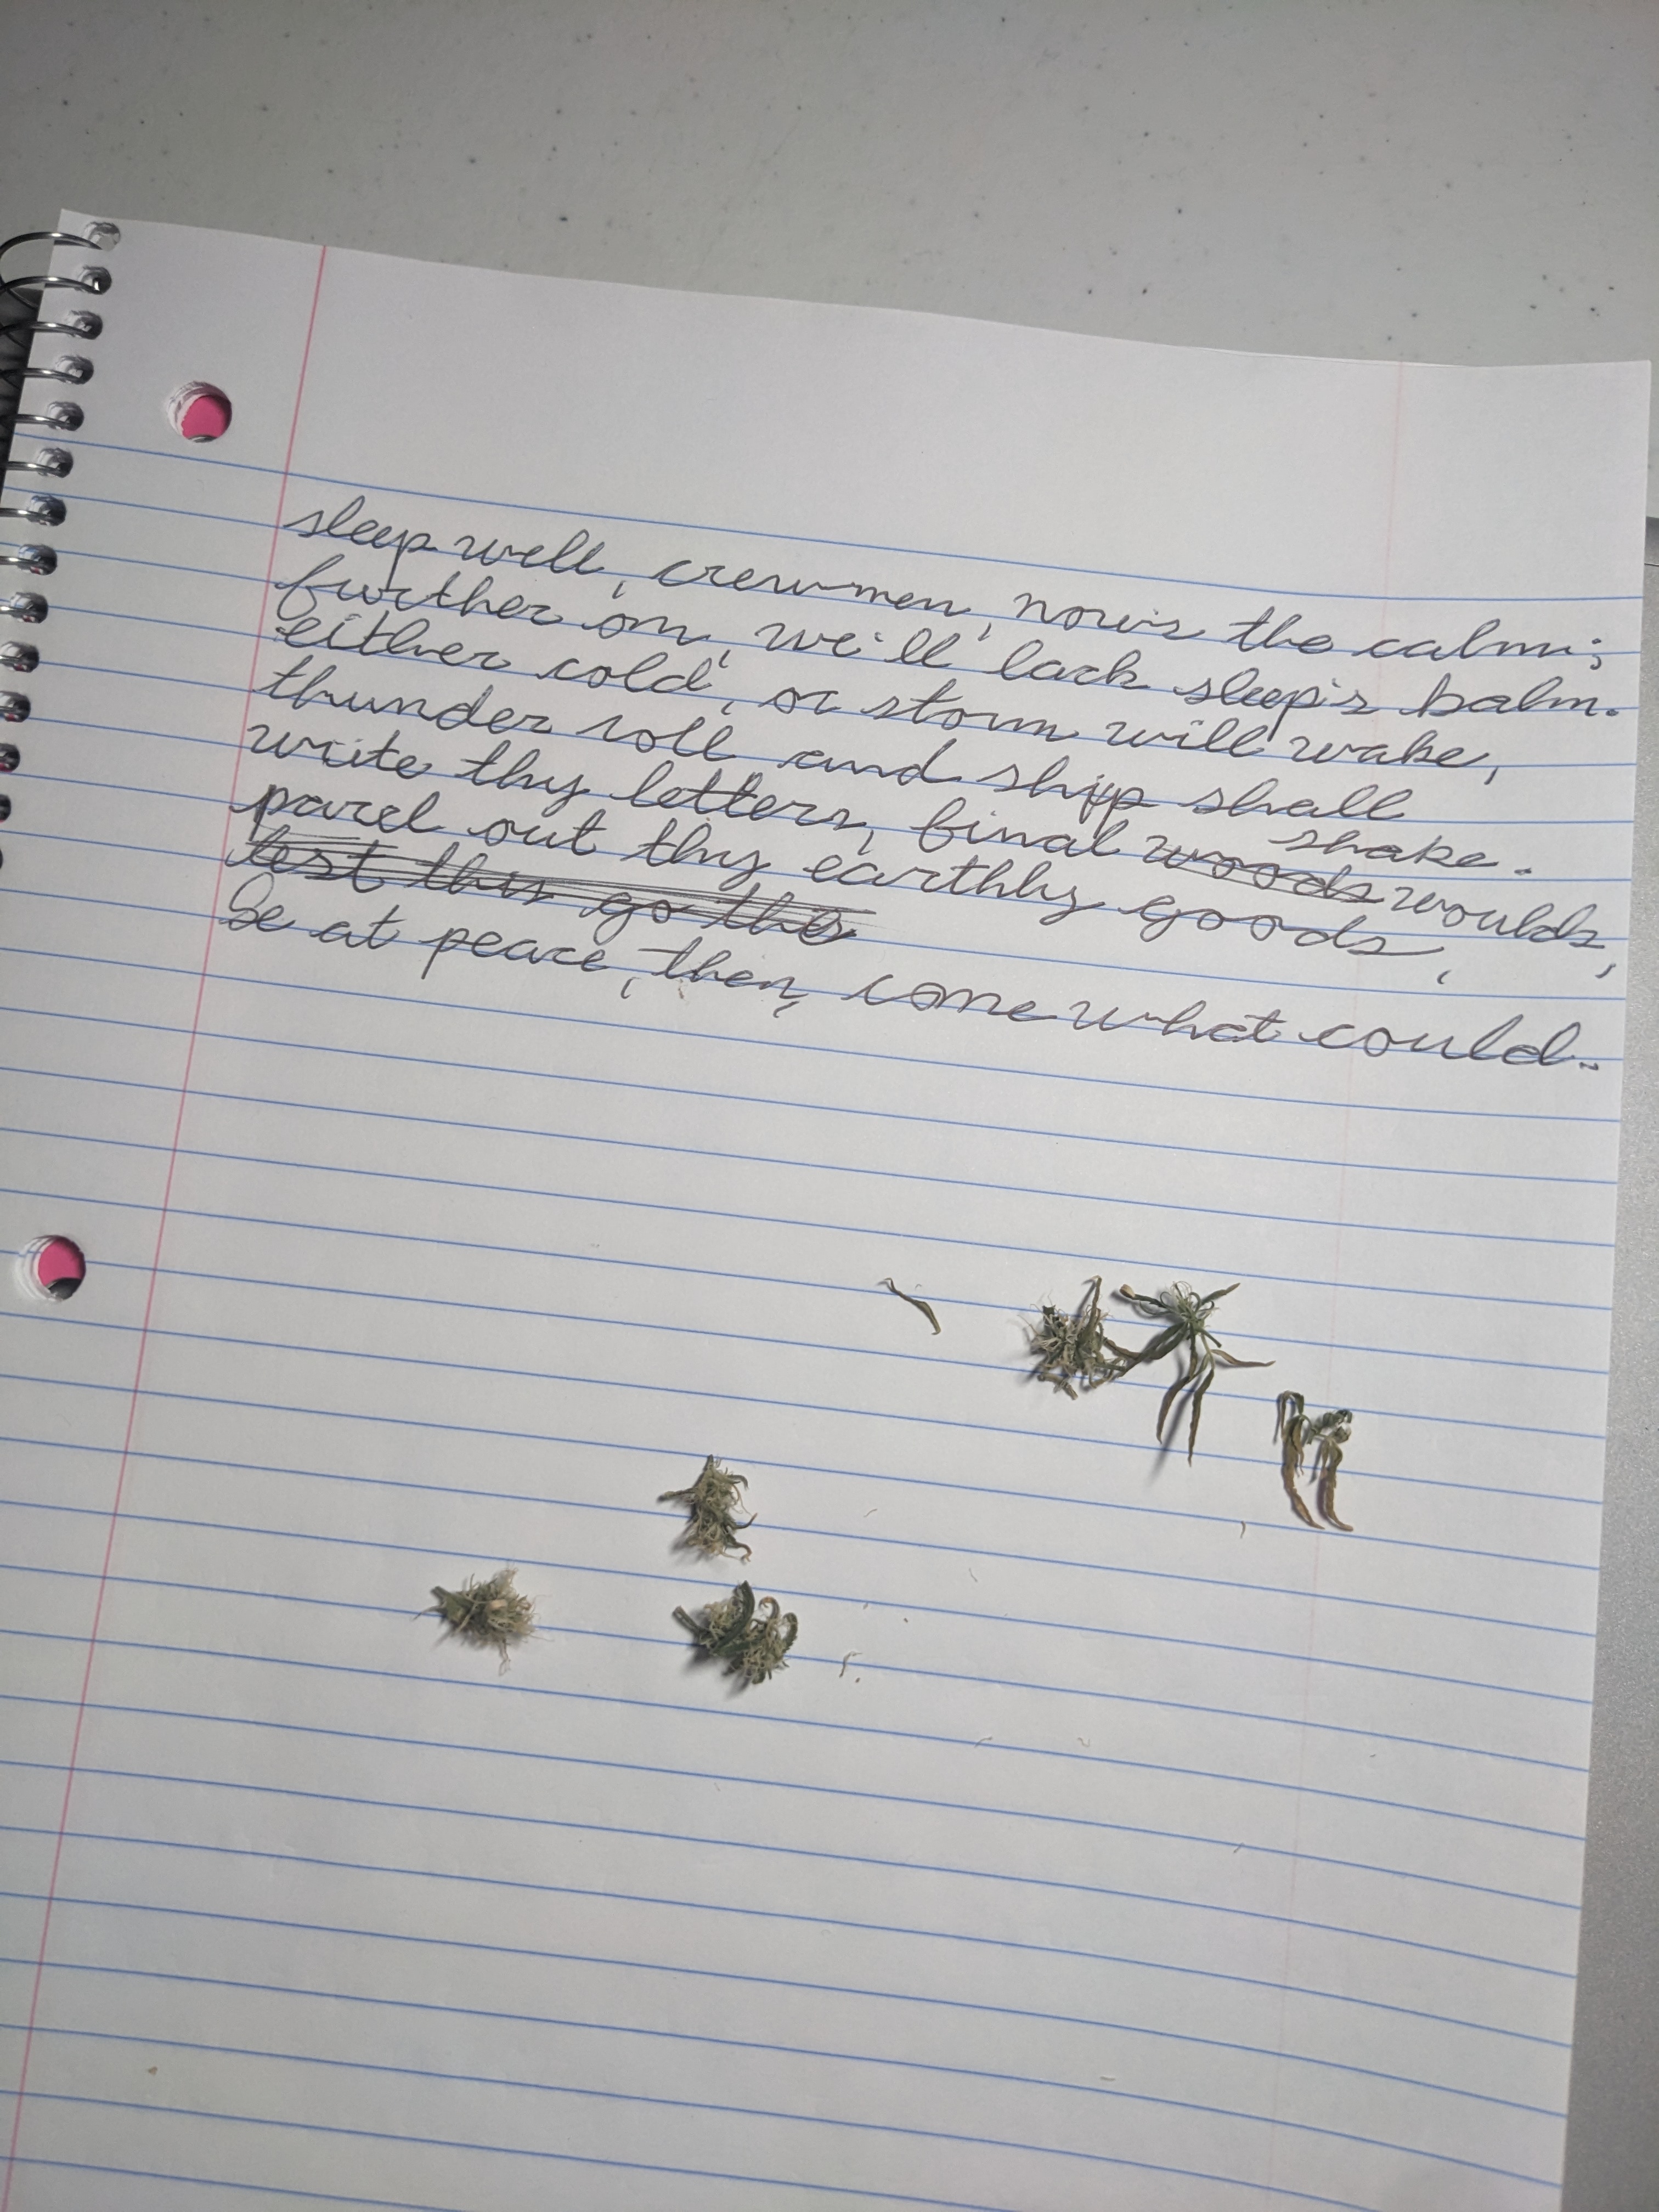 sleep well, crewmen, now's the calm;
further on, we'll lack sleep's balm.
either cold, or storm will wake,
thunder roll and ship shall
shake.
write thy letters, final woods woulds,
parcel out thy earthly goods,
lest this go the
be at peace, then, come what could.